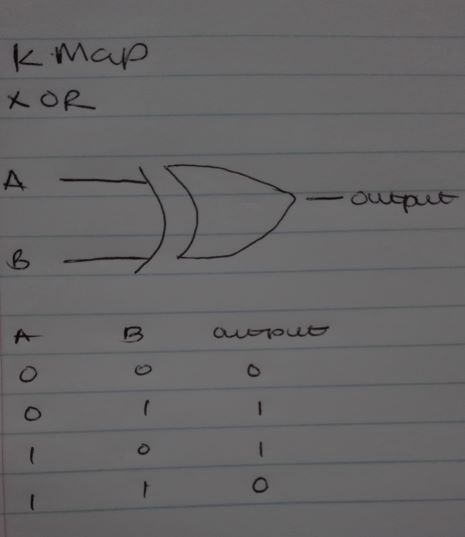 K Map
XOR
A
output
B
A B output
0 0 0
0 1 1
1 0 1
1 1 0